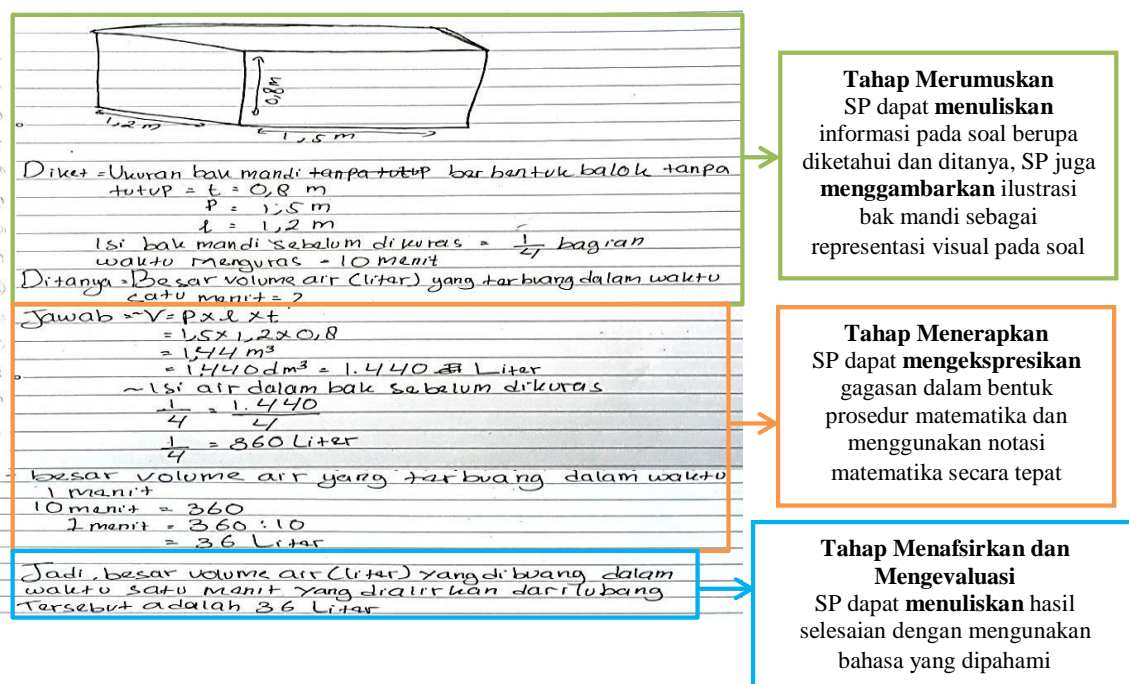 0,8m
1,2 m
1,5 m
Diket = Ukuran bak mandi tanpa tutup berbentuk balok tanpa
tutup = t = 0,8 m
P = 1,5 m
l = 1,2 m
Isi bak mandi sebelum dikuras = 1/4 bagian
waktu menguras = 10 menit
Ditanya = Besar volume air (liter) yang terbuang dalam waktu
satu menit = ?
Jawab = ~ V = P x l x t
= 1,5 x 1,2 x 0,8
= 1,44 m³
= 1440 dm³ = 1.440 Liter
~ Isi air dalam bak sebelum dikuras
1/4 = 1.440/4
1/4 = 360 Liter
- besar volume air yang terbuang dalam waktu
1 menit
10 menit = 360
1 menit = 360 : 10
= 36 Liter
Jadi, besar volume air (liter) yang dibuang dalam
waktu satu menit yang dialirkan dari lubang
Tersebut adalah 36 Liter
Tahap Merumuskan
SP dapat menuliskan
informasi pada soal berupa
diketahui dan ditanya, SP juga
menggambarkan ilustrasi
bak mandi sebagai
representasi visual pada soal
Tahap Menerapkan
SP dapat mengekspresikan
gagasan dalam bentuk
prosedur matematika dan
menggunakan notasi
matematika secara tepat
Tahap Menafsirkan dan
Mengevaluasi
SP dapat menuliskan hasil
selesaian dengan mengunakan
bahasa yang dipahami